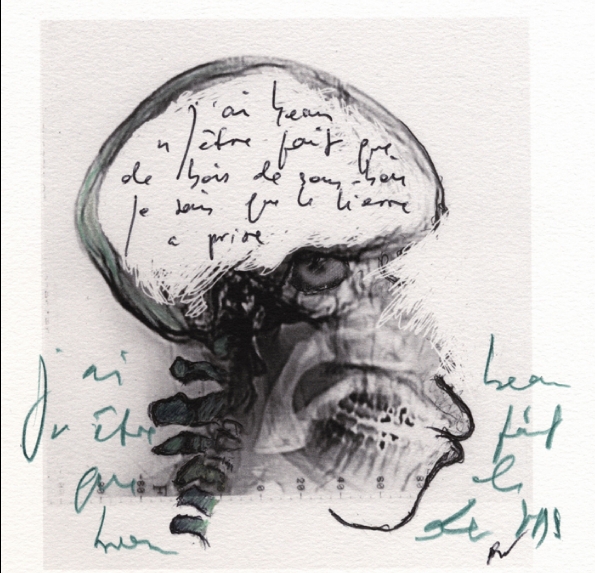 j'ai beau
n'être fait que
de bois de sous-bois
je sais que le lierre
a prise
j'ai beau
n'être fait
que de